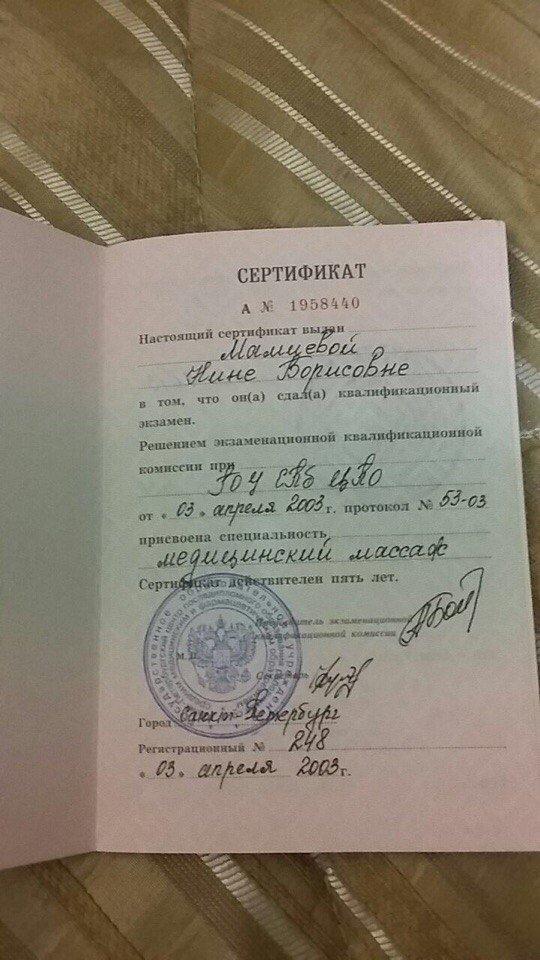 СЕРТИФИКАТ
А № 1958440
Настоящий сертификат выдан
Мамцевой
Нине Борисовне
в том, что он(а) сдал(а) квалификационный
экзамен.
Решением экзаменационной квалификационной
комиссии при
ГОУ СПб ЦПО
от « 03 » апреля 2003 г. протокол № 53-03
присвоена специальность
медицинский массаж
Сертификат действителен пять лет.
Председатель экзаменационной
квалификационной комиссии
М.П.
Секретарь
Город Санкт-Петербург
Регистрационный № 248
« 03 » апреля 2003 г.